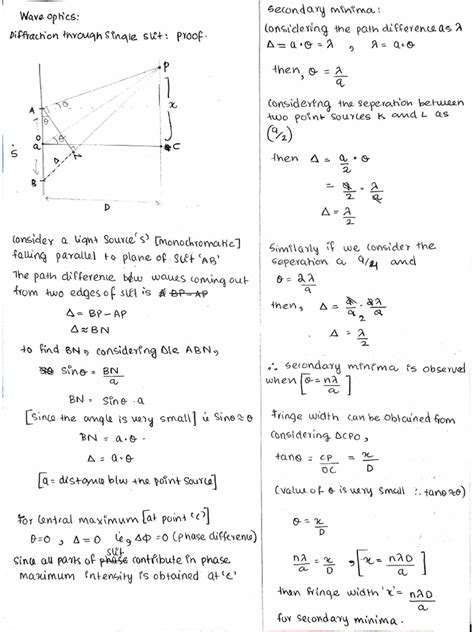 Wave optics:
Diffraction through Single Slit: Proof.
P
A
θ
θ
x
O
a
S
N
C
Δ
B
D
Consider a light source 'S' [monochromatic]
falling parallel to plane of slit 'AB'
The path difference b/w waves coming out
from two edges of slit is BP-AP
Δ = BP-AP
Δ≈BN
to find BN, considering Δle ABN,
Sinθ = BN/a
BN = Sinθ·a
[Since the angle is very small] is Sinθ≈θ
BN = a·θ
Δ = a·θ
[a = distance b/w the point source]
For Central maximum [at point 'C']
θ=0, Δ=0 ie, ΔΦ=0 (phase difference)
Since all parts of slit contribute in phase
maximum intensity is obtained at 'C'
Secondary minima:
Considering the path difference as λ
Δ = a·θ = λ , λ = a·θ
then, θ = λ/a
Considering the seperation between
two point sources K and L as
(a/2)
then Δ = a/2 · θ
= a/2 · λ/a
Δ = λ/2
Similarly if we consider the
seperation a a/4 and
θ = 2λ/a
then, Δ = a/2 · 2λ/a
Δ = λ/2
∴ secondary minima is observed
when [θ = nλ/a]
Fringe width can be obtained from
considering ΔCPO,
tanθ = CP/OC = x/D
(value of θ is very small ∴ tanθ≈θ)
θ = x/D
nλ/a = x/D , [x = nλD/a]
then fringe width 'x' = nλD/a
for secondary minima.